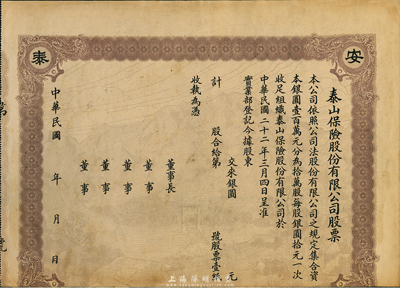 安
泰
泰山保險股份有限公司股票
本公司依照公司法股份有限公司之規定集合資
本銀圓壹百萬元分為拾萬股每股銀圓拾元一次
收足組織泰山保險股份有限公司於
中華民國二十二年三月四日呈准
實業部登記今據股東
交來銀圓 元
計 股合給第 號股票壹紙
收執為憑
董事長
董事
董事
董事
董事
中華民國 年 月 日
第 號